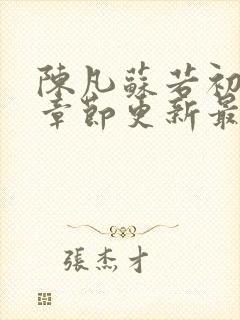 陳凡蘇若初
章節更新最
張杰才